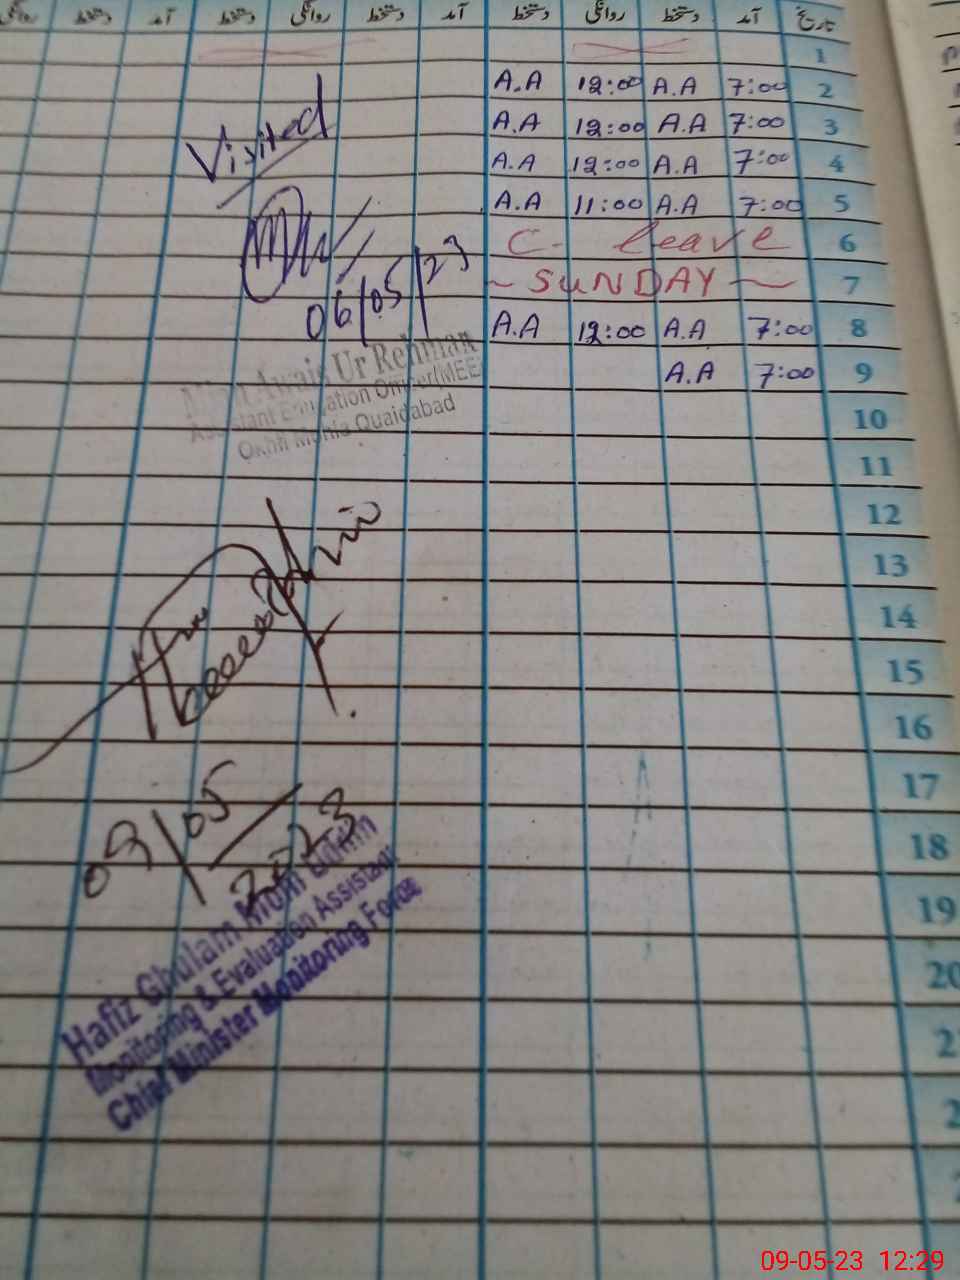 تاریخ آمد دستخط روانگی دستخط آمد دستخط روانگی دستخط آمد دستخط روانگی
1
2 7:00 A.A 12:00 A.A
3 7:00 A.A 12:00 A.A
4 7:00 A.A 12:00 A.A
5 7:00 A.A 11:00 A.A
6 C. leave
7 ~ SUNDAY ~
8 7:00 A.A 12:00 A.A
9 7:00 A.A
10
11
12
13
14
15
16
17
18
19
20
Visited
06/05/23
Awais Ur Rehman
Assistant Education Officer(MEE)
Okhli Mohla Quaidabad
09/05/2023
Hafiz Ghulam Mohi Uddin
Monitoring & Evaluation Assistant
Chief Minister Monitoring Force
09-05-23 12:29